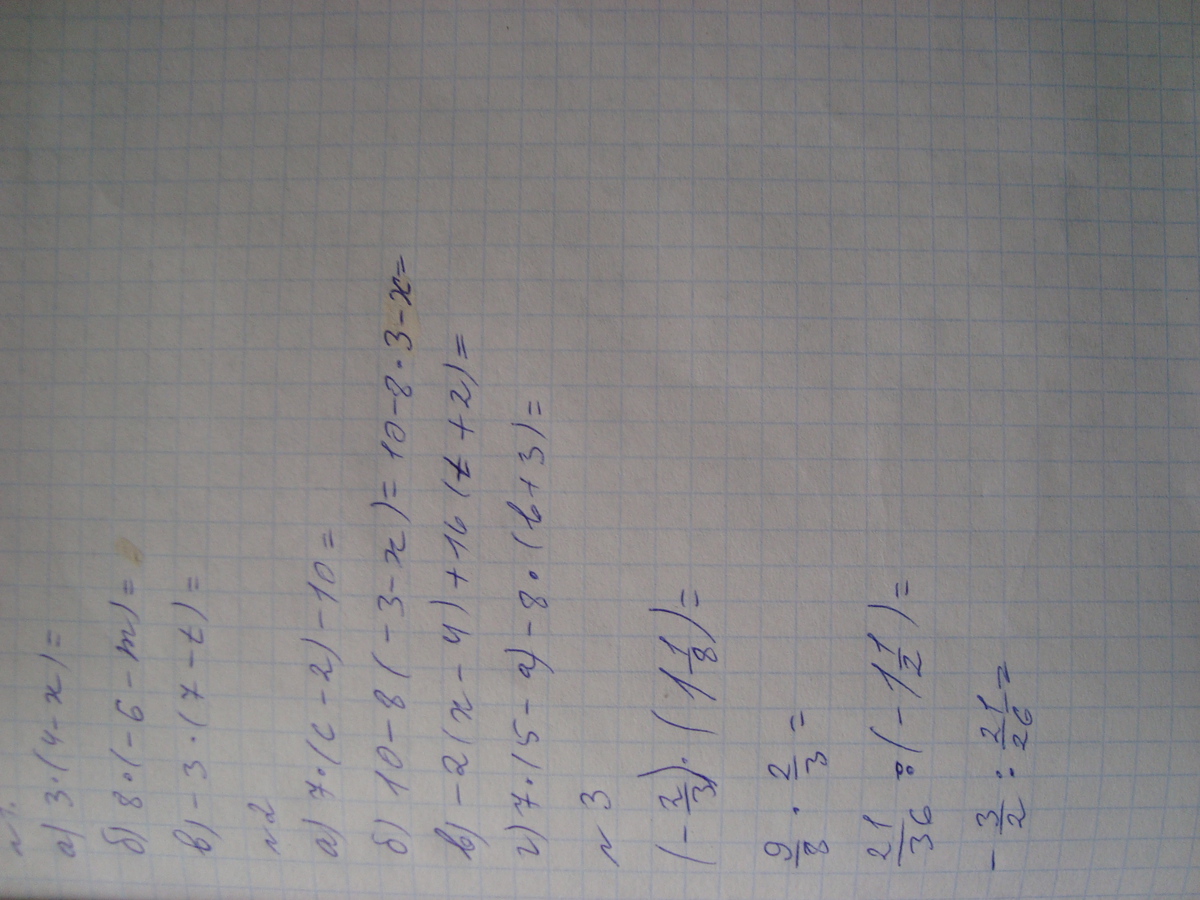 №1.
а) 3·(4-x)=
б) 8·(-6-m)=
в) -3·(7-t)=
№2
а) 7·(c-2)-10=
б) 10-8(-3-x)=10-8·3-x=
в) -2(x-4)+16(t+2)=
г) 7·(5-a)-8·(b+3)=
№3
(-2/3)·(1 1/8)=
9/8·2/3=
21/36:(-1 1/2)=
-3/2:21/26=